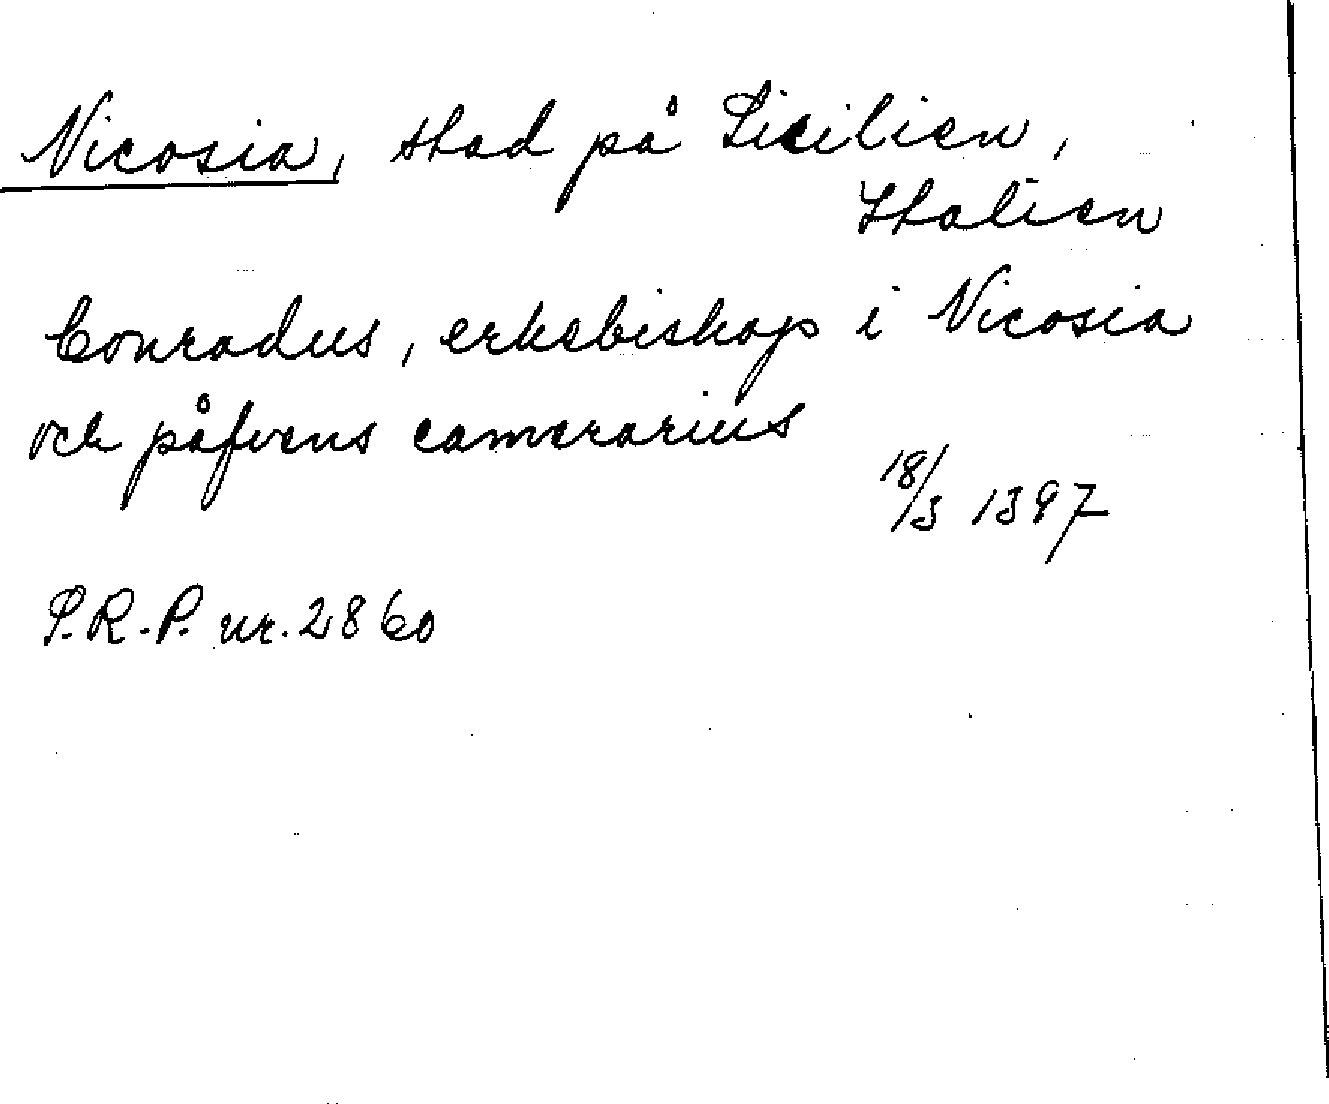 Nicosia, stad på Sicilien,
Italien
Conradus, erkebiskop i Nicosia
och påfvens camerarius
18/3 1397
P.R.P. nr. 2860